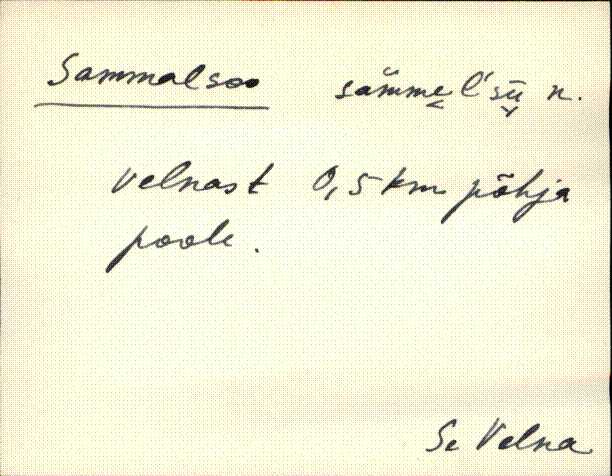 Sammalsoo sämmel'sü n.
Velnast 0,5 km põhja
poole.
Se Velna